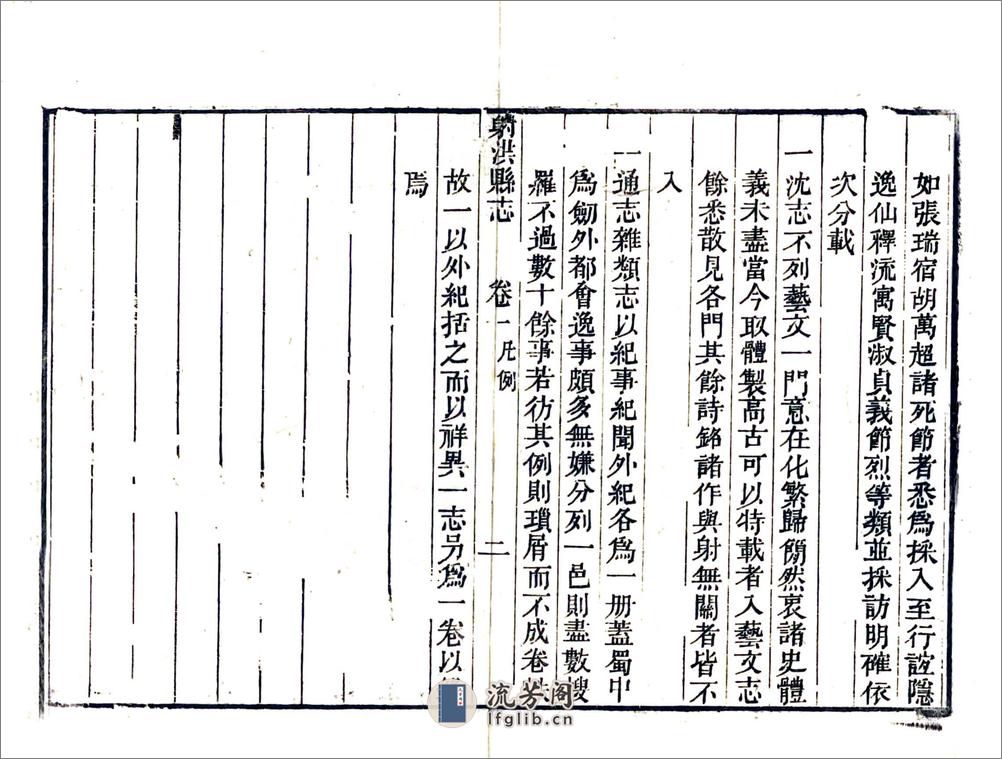 如張瑞宿胡萬超諸死節者悉為採入至行誼隱
逸仙釋流寓賢淑貞義節烈等類並採訪明確依
次分載
一沈志不列藝文一門意在化繁歸簡然衷諸史體
義未盡當今取體製高古可以特載者入藝文志
餘悉散見各門其餘詩銘諸作與射無關者皆不
入
一通志雜類志以紀事紀聞外紀各為一册蓋蜀中
為劒外都會逸事頗多無嫌分列一邑則盡數搜
羅不過數十餘事若彷其例則瑣屑而不成卷
射洪縣志 卷一凡例 二
故一以外紀括之而以祥異一志另為一卷以
焉
流芳阁
lfglib.cn